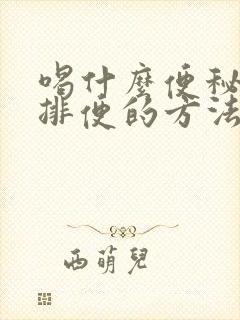 喝什麼便秘
排便的方法
西萌兒